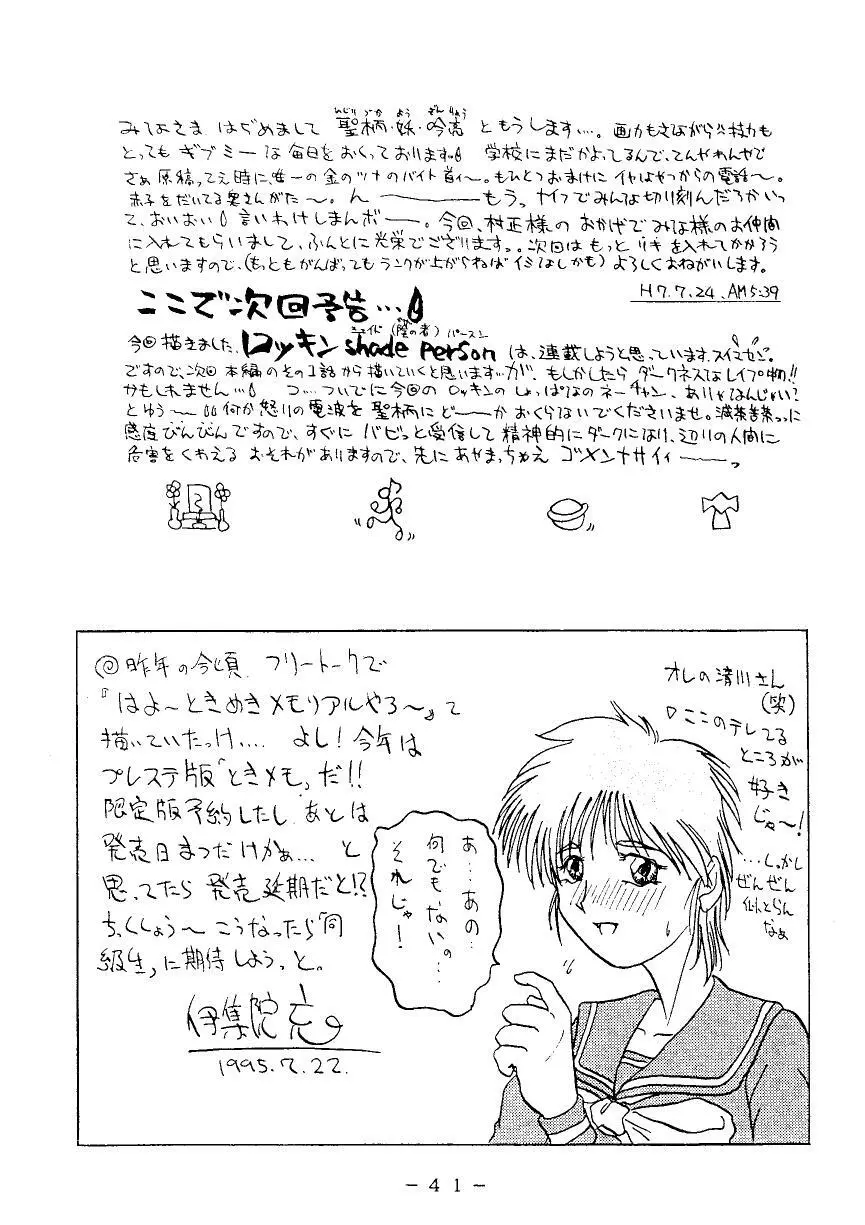 みなさま はぢめまして 聖柄・妖・吟高 ともうします…。画力もさながら
とっても ギブミーな毎日をおくっております。 学校にまだかよってるんで、てんやわんやで
さぁ 原稿ってぇ時に、唯一の金のツナのバイト首ィ〜。もひとつおまけに イヤなやつからの電話〜。
赤子をだいてる奥さんがた〜。ん――――もう。ナイフでみんな切り刻んだろかいっ
て、おいおい 言いわけしまんボ――。今回、村正様の おかげで みな様のお仲間
に入れてもらいまして、ふんとに光栄でございます。。次回は もっと リキ を入れてかかろう
と思いますので、(もっともがんばっても ランクが上がらねばイミなしかも) よろしくおねがいします。
H7.7.24. AM5:39
ここで次回予告…
今回描きました、ロッキン shade person は、連載しようと思っています。スイマセン。
(陰の者) パースン
ですので、次回 本編のその1話から描いていくと思います…が、もしかしたら ダークネスなレイプ物!!
かもしれません… つ…ついでに今回の ロッキンの しょっぱなのネーチャン、ありゃなんじゃい?
とゆう〜 何か怒りの電波を聖柄に ど――か おくらないでくださいませ。滅茶苦茶っっに
感度びんびんですので、すぐに バビッと受信して 精神的にダークになり、辺りの人間に
危害をくわえる おそれがありますので、先に あやまっちゃえ ゴメンナサイィ――っ
◎昨年の今頃 フリートークで
『はよ〜ときめきメモリアルやろ〜』って
描いていたっけ…. よし!今年は
プレステ版「ときメモ」だ!!
限定版予約したし あとは
発売日まつだけかぁ… と
思ってたら 発売延期だと!?
ちっくしょう〜 こうなったら「同
級生」に期待しよう。っと。
伊集院 
1995.7.22.
オレの清川さん
(笑)
ここのテレてる
ところが
好き
じゃ〜!
…しっかし
ぜんぜん
似とらん
なぁ
あ…あの…
何でもないの…
それじゃ!
- 41 -